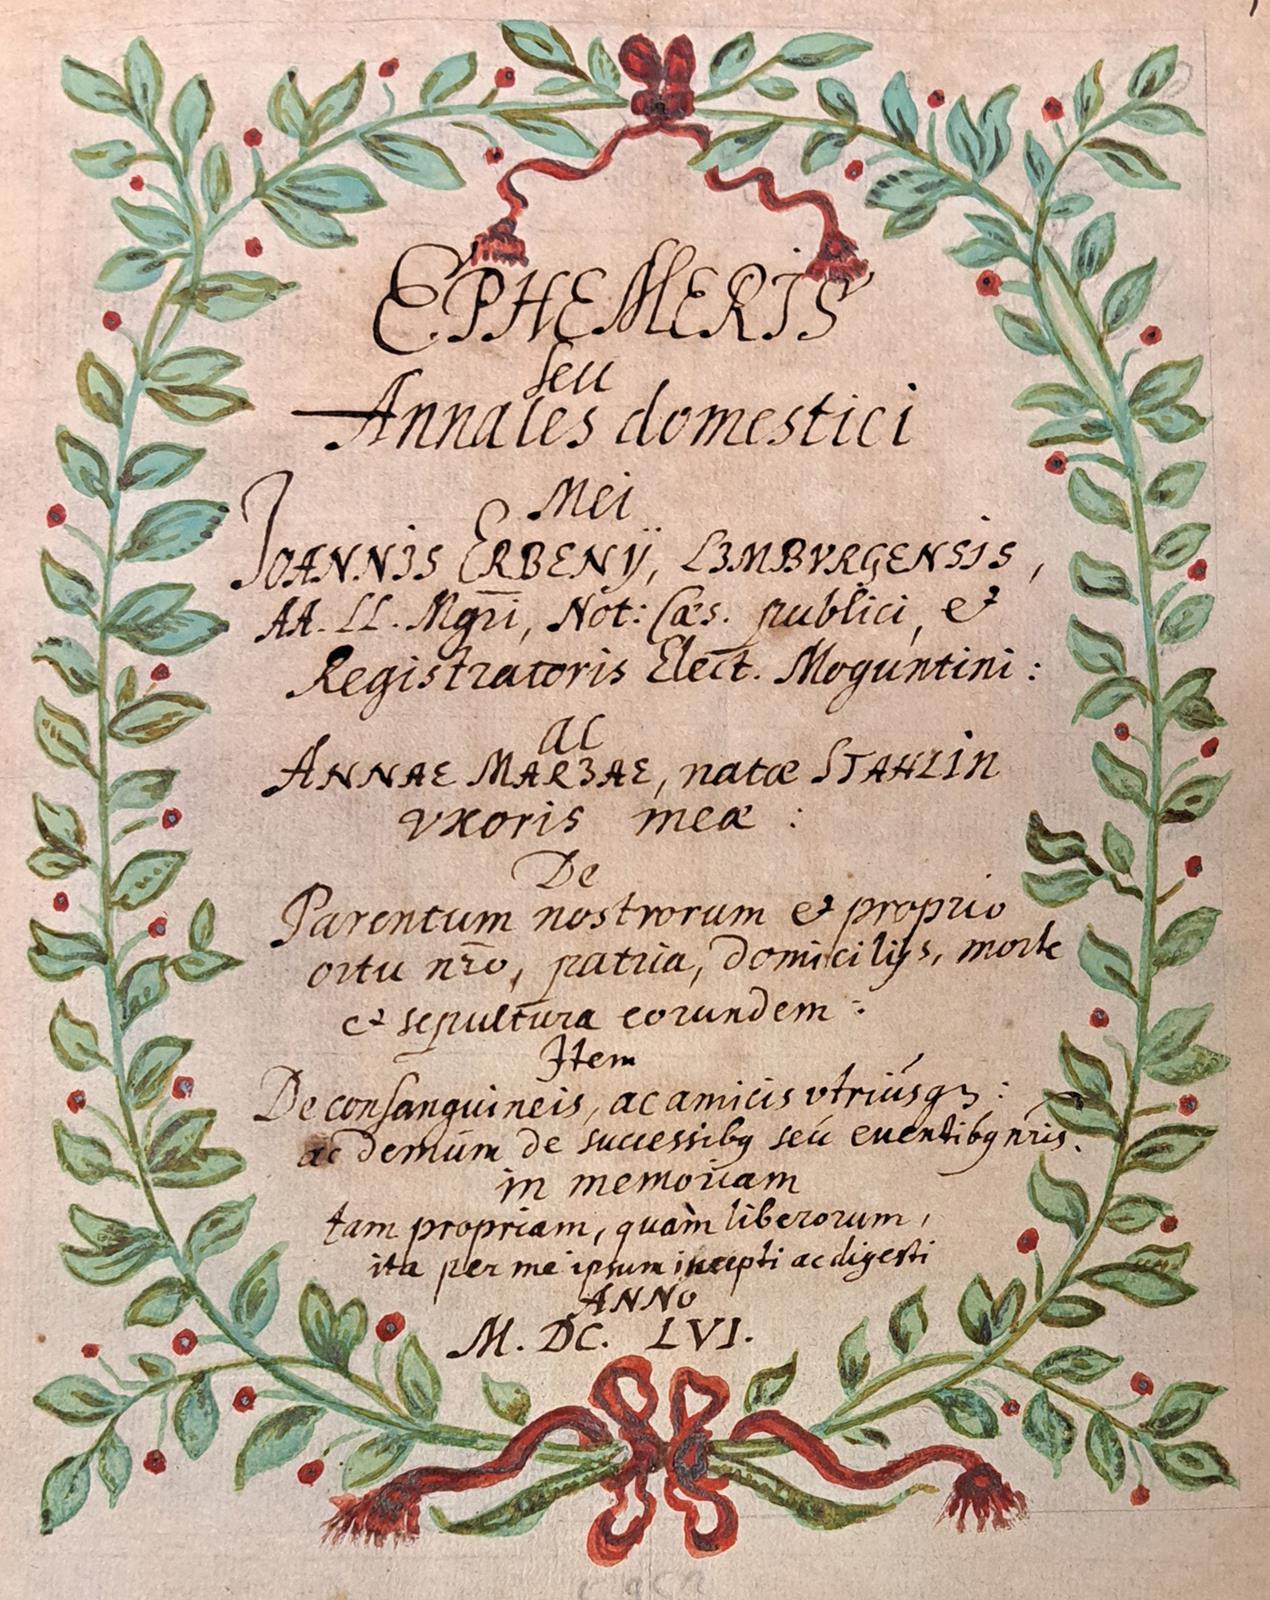 EPHEMERIS
seu
Annales domestici
Mei
IOANNIS ERBENŸ, LIMBVRGENSIS,
AA. LL. Mgr̄i, Not: Cæs. publici, &
Registratoris Elect. Moguntini:
ac
ANNAE MARIAE, natæ STAHLIN
vxoris meæ:
De
Parentum nostrorum & proprio
ortu nr̄o, patria, domicilijs, morte
& sepultura eorundem:
Item
De consanguineis, ac amicis vtriúsqꝫ:
ac demùm de successibꝫ seú euentibꝫ nr̄is.
in memoriam
tam propriam, quàm liberorum,
ita per me ipsum incepti ac digesti
ANNO
M. DC. LVI.